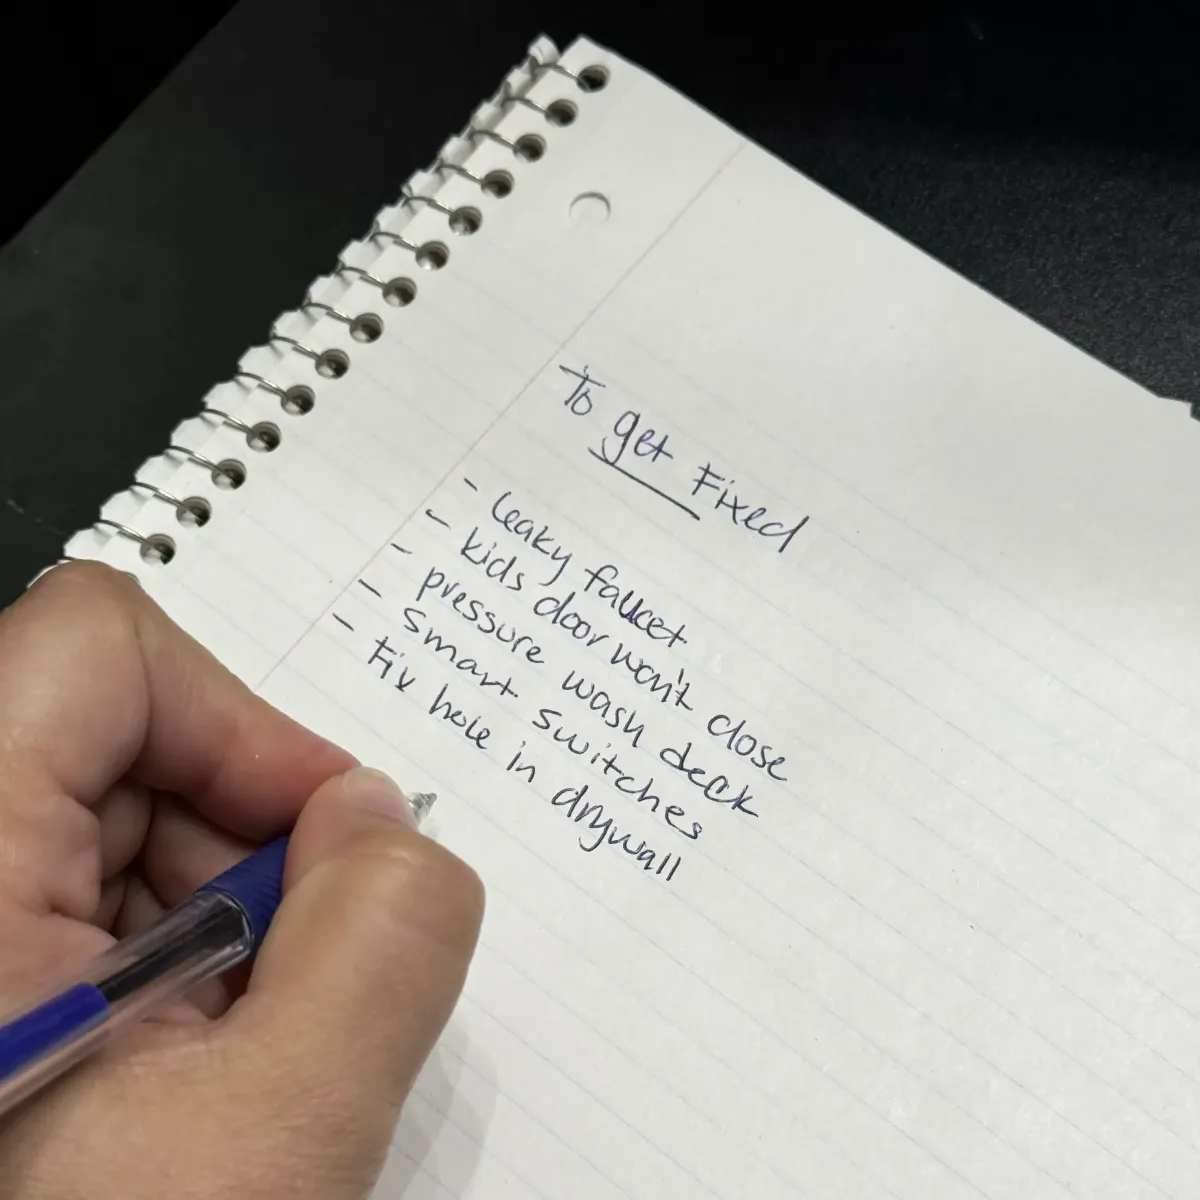 To get Fixed
- leaky faucet
- kids door won't close
- pressure wash deck
- smart switches
- Fix hole in drywall